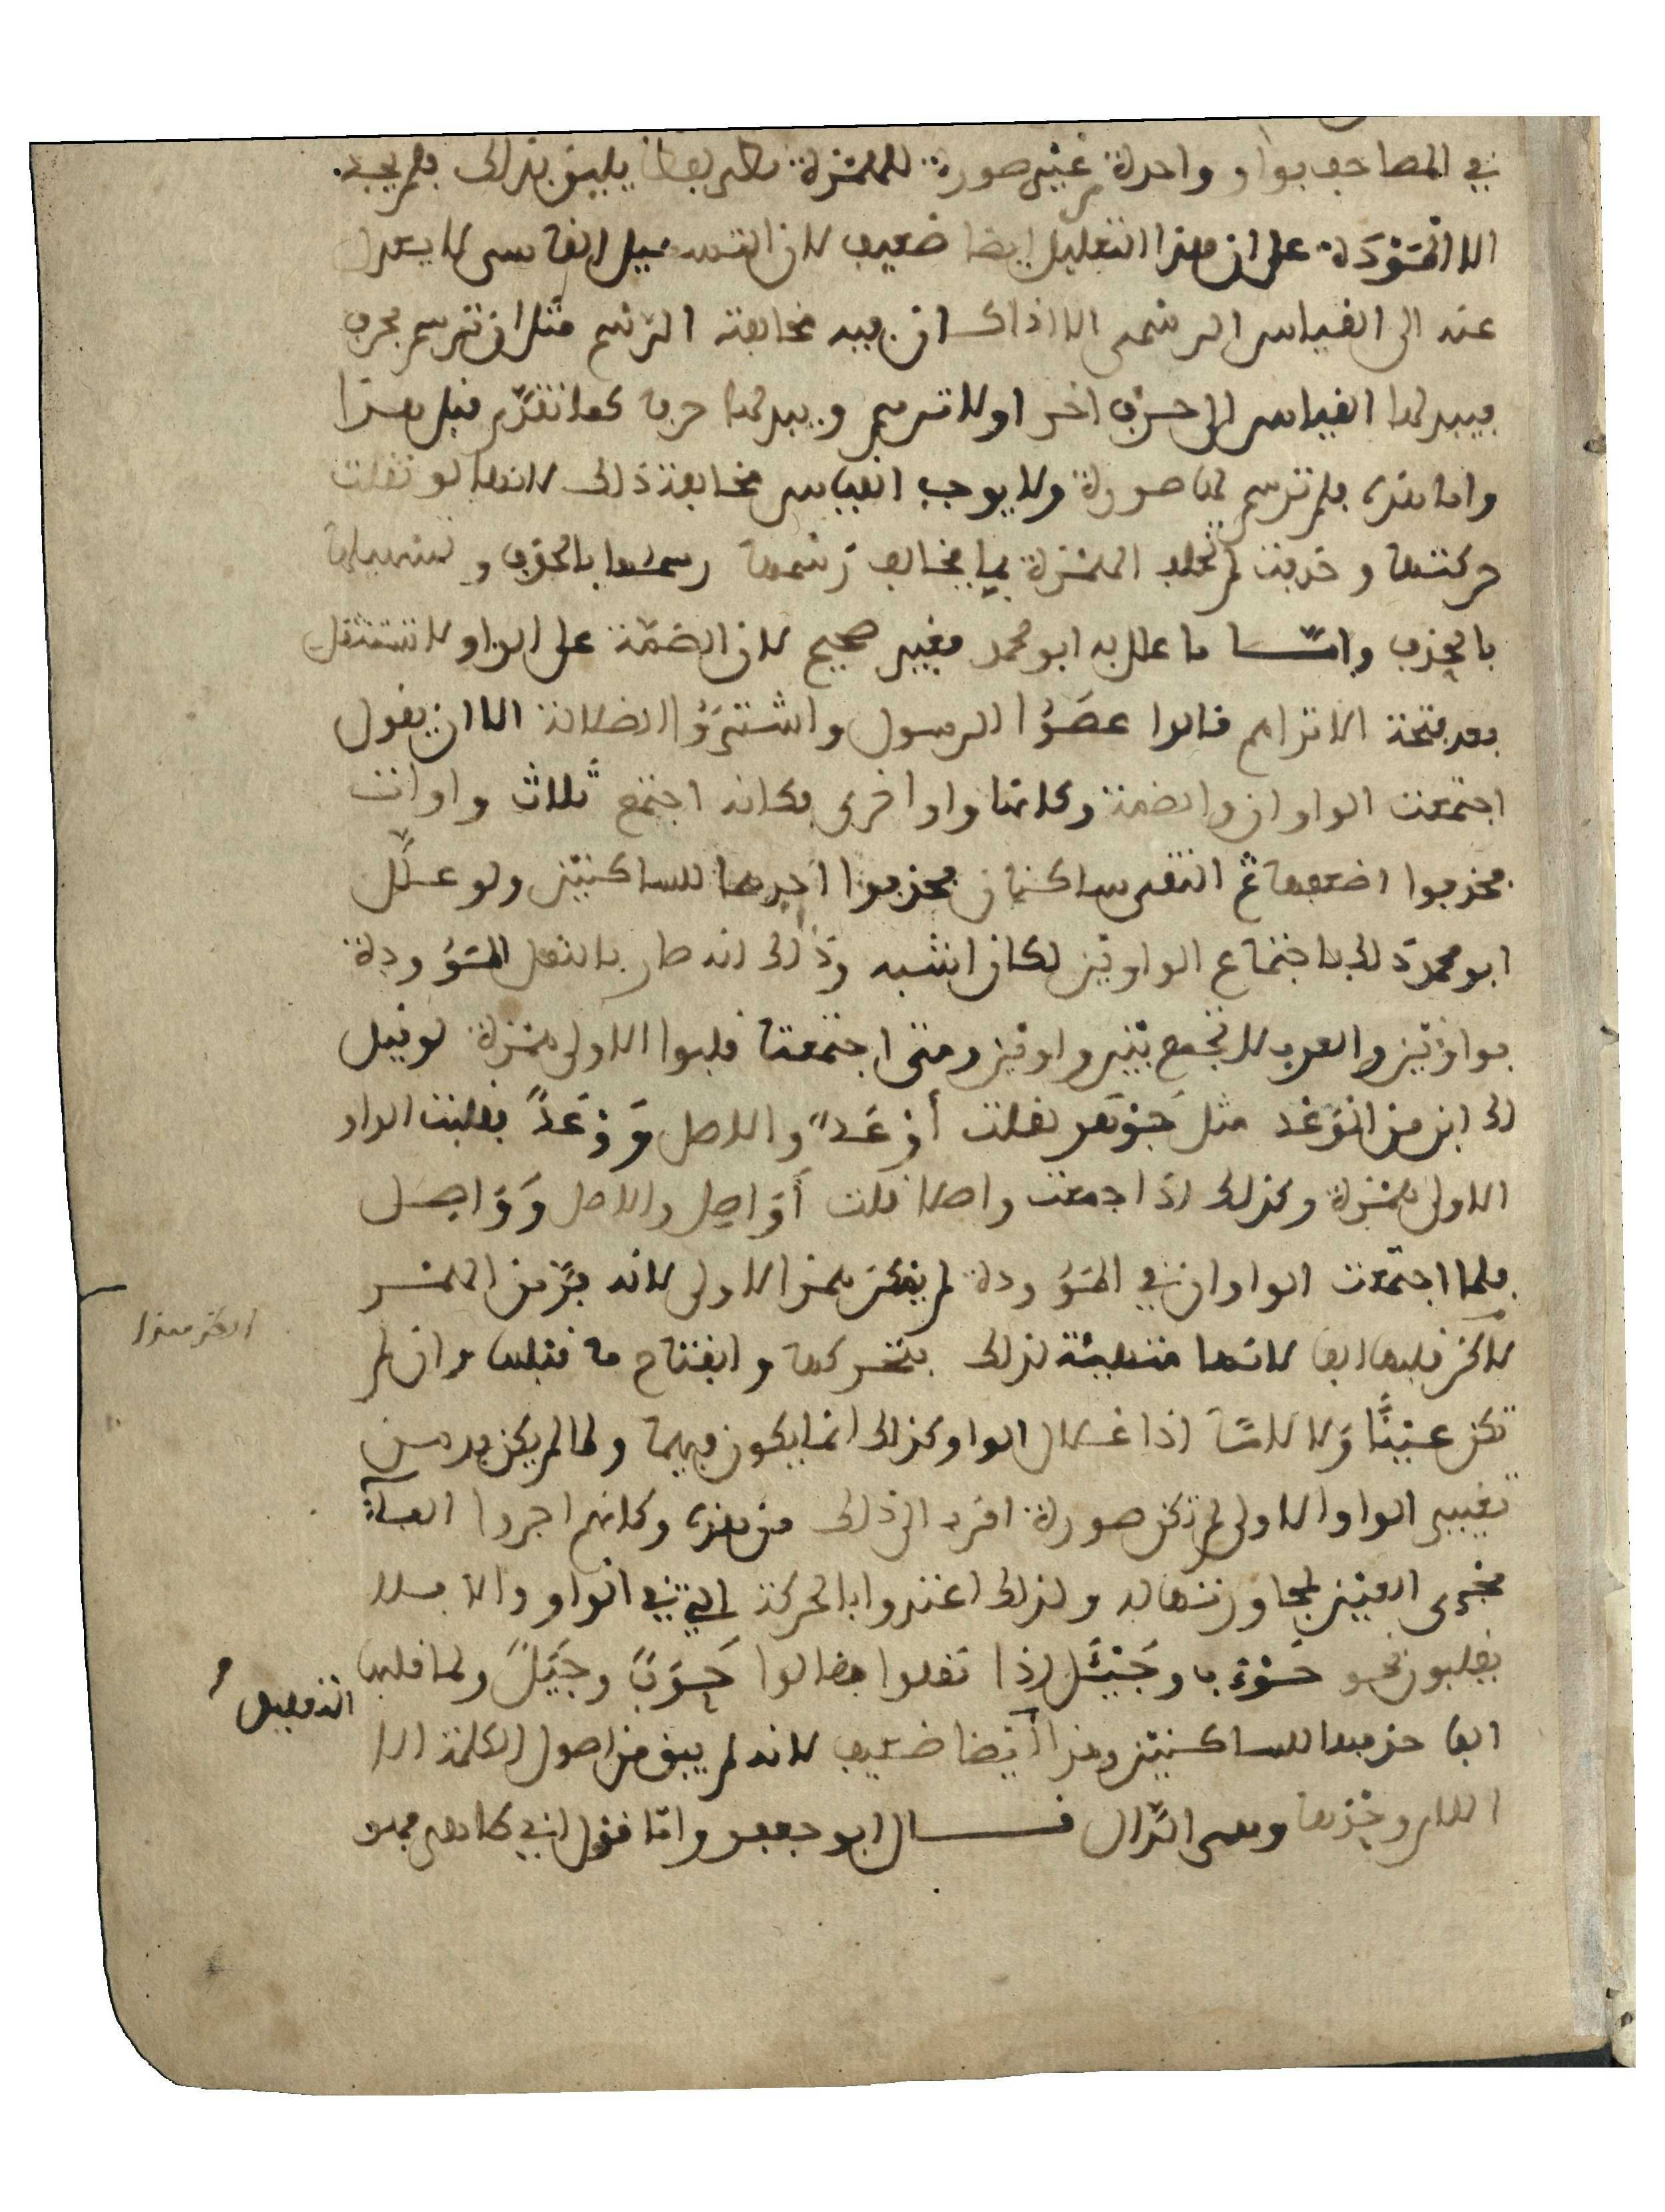 في المصاحف بواو واحدة غير صورة للهمزة يليق بذلك فلم يجد
الا المَوْدَة على ان هذا التعليل ايضا ضعيف لان التسهيل القياسي لا يعدل
عنه الى القياس الرسمي الا اذا كان فيه مخالفة الرسم مثل ان ترسم بحرف
فيبدلها القياس الى حرف اخر او لا ترسم ويبدلها حرفا كما تقدم قبل هذا
واما هذه فلم ترسم لها صورة ولا يوجب القياس مخالفة ذلك لانها لو نقلت
حركتها وحذفت لم تخلف الهمزة بما يخالف رسمها رسمها بالحذف وتسهيلها
بالحذف وامّا ما علل به ابو محمد فغير صحيح لان الضمّة على الواو لا تستثقل
بعد فتحة الا تراهم قالوا عصَوُا الرسول واشترَوُا الضلالة الا ان يقول
اجتمعت الواوان والضمة وكانها واو اخرى فكانه اجتمع ثلاث واوات
فحذفوا اضعفها ثم التقى ساكنان فحذفوا احدهما للساكنين ولو علّل
ابو محمد ذلك باجتماع الواوين لكان اشبه وذلك انه صار بالنقل المَوُودة
بواوين والعرب لا تجمع بين واوين ومتى اجتمعتا قلبوا الاولى همزة لو قيل
لك ابن من الوَعْد مثل جَوْهَر لقلت أَوْعَدٌ والاصل وَوْعَدٌ فقلبت الواو
الاولى همزة وكذلك اذا جمعت واصلا قلت أَوَاصِل والاصل وَوَاصِل
فلما اجتمعت الواوان في المَوُودة لم يمكن همز الاولى لانه فرّ من الهمز
لاكن قلبها الفا لانها متهيئة لذلك بتحركها وانفتاح ما قبلها وان لم
تكن عيْنًا وَلا لامًا اذ اعلال الواو كذلك انما يكون فيهما ولما لم يكن بد من
تغيير الواو الاولى لم تكن صورة اقرب الى ذلك من هذه وكانهم اجروا الفاءَ
مجرى العين لمجاورتها له ولذلك اعتدوا بالحركة التي في الواو والا فهلا
يقلبون نحو حَوْءَبٍ وجَيْئَل اذا نقلوا فقالوا حَوَبٌ وجَيَلٌ ولما قلبها
الفا حذفها للساكنين وهذا أيضا ضعيف لانه لم يبق من اصول الكلمة الا
اللام وحدها وهي الدّال قال ابو جعفر وامّا نقل ابن مجاهد فهو